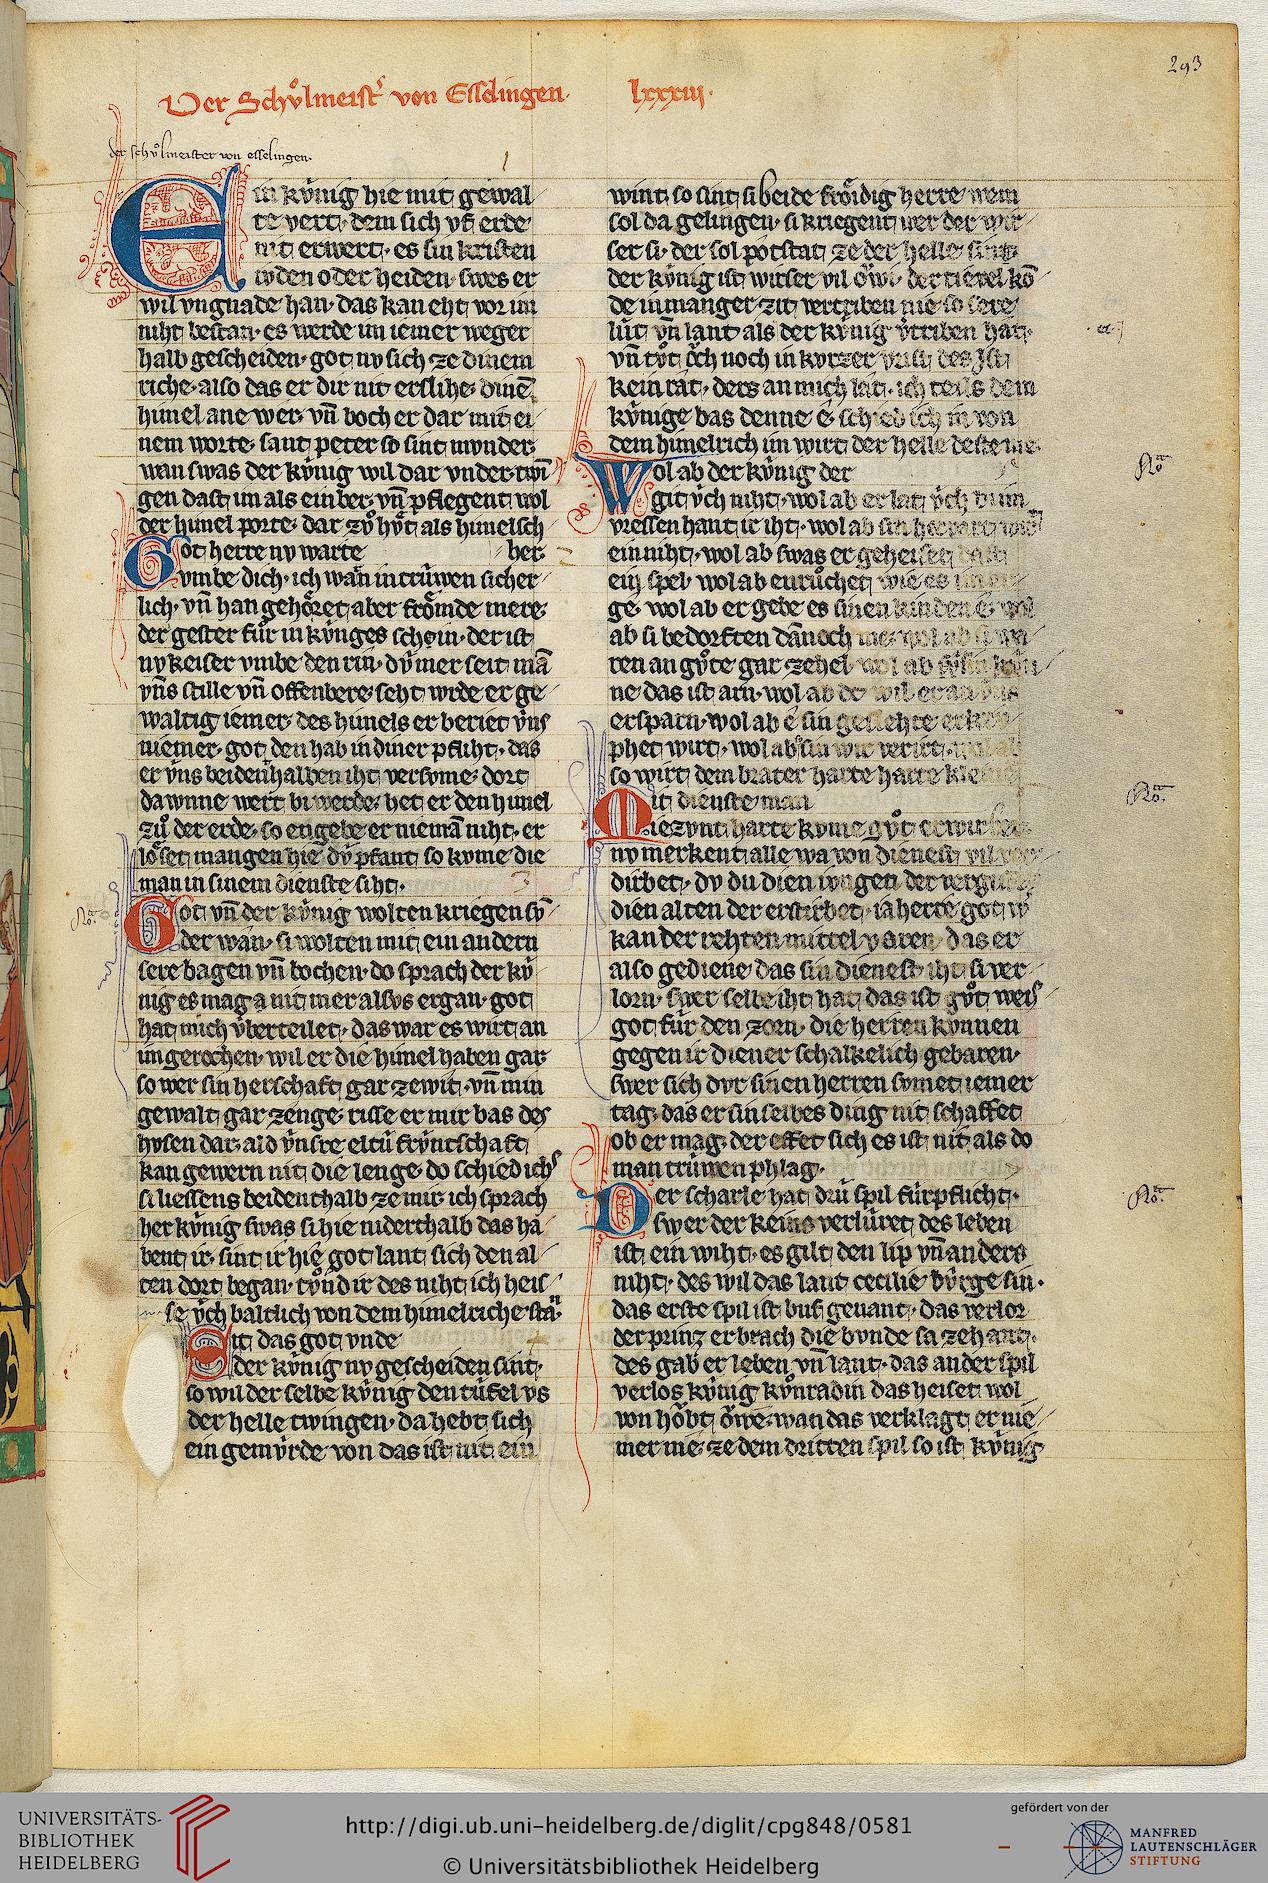 293
Der Schůlmeistʼ von Esslingen. lxxxiij.
der schůlmeister von esselingen.
Ein kv́nig hie mit gewal-
te vert. dem sich vf erde
nit erwert. es sin kristen
ivden oder heiden. swes er
wil vngnade han. das kan eht vor im
niht bestan. es werde im iemer weger
halb gescheiden. got nv sich ze dinem
riche. also das er dir nit erslihe. dinē
himel ane wer. vn̄ boch er dar mit ei-
nem worte. sant peter so sint mvnder.
wan swas der kv́nig wil dar vnder. twī-
gen dast im als ein ber. vn̄ pflegent wol
der himel porte. dar zů hv́t als himelsch
Got herre nv warte her.
vmbe dich. ich wān in trúwen sicher-
lich. vn̄ han gehöret aber frömde mere.
der gester fúr in kv́nges schein. der ist
nv keiser vmbe den rin. dv́ mer seit mā
vn̄s stille vn̄ offenbere. seht wrde er ge-
waltig iemer. des himels er beriet v́ns
niemer. got den hab in diner pfliht. das
er v́ns beidenhalben iht versvme. dort
da wnne wert bi werde. het er den himel
zů der erde. so engebe er niemā niht. er
löset mangen hie dv́ pfant so kvme die
man in sinem dienste siht.
Got vn̄ der kv́nig wolten kriegen sv̄-
der wān. si wolten mit ein andern
sere bagen vn̄ bochen. do sprach der kv́-
nig es mag a nit mer alsvs ergan. got
hat mich v́berteilet. das war es wirt an
im gerochen. wil er die himel haben gar.
so wer sin herschaft gar ze wit. vn̄ min
gewalt gar zenge. risse er mir bas des
hvsen dar. ald v́nsre eltú frv́ntschaft
kan gewern nit die lenge. do schied ichs
si liessens beidenthalb ze mir. ich sprach
her kv́nig swas si hie niderthalb das ha-
bent ir. sint ir hie got lant sich den al-
ten dort began. tv́nd ir des niht ich heis-
se v́ch baltlich von dem himelriche stān.
Sit das got vnde
der kv́nig nv gescheiden sint.
so wil der selbe kv́nig den túfel vs
der helle twingen. da hebt sich
ein gemv́rde von das ist nit ein
wint. so sint si beide frödig herre wem
sol da gelingen. si kriegent wer der wir-
ser si. der sol potstat ze der helle sin.
der kv́nig ist wirser vil owi. der tievel kō-
de in manger zit vertriben nie so sere
lút vn̄ lant als der kv́nig v̓triben hat.
vn̄ tůt öch noch in kvrzer vrist des Ist
kein rat. ders an mich lat. ich teils dem
kv́nige bas denne e. schied ich in von
dem himelrich im wirt der helle deste me.
Wol ab der kv́nig der
git v́ch niht. wol ab er lat v́ch bi im
vressen hant ir iht. wol ab sin hervart wirt
ein niht. wol ab swas er geheisen
ein spel. wol ab enrůchet wie es
ge. wol ab er gebe es sinen kinden e. wol
ab si bedorften dānoch me. wol ab si wa-
ren an gůte gar zehel. wol ab
ne das ist arn. wol ab
ersparn. wol ab e sin geslehte
phet wirt. wol ab sin wir verirt. wol ab
so wirt dem brater harte harte kleine
Mit dienste man
iezvnt harte kvme gůt erwirbet.
nv merkent alle wa von dienest vil ver-
dirbet. dv du dien ivngen der
dien alten der erstirbet. ia herre got w
kan der rehten mittel varen. das er
also gediene das sin dienest iht si ver-
lorn. swer selbe iht hat das ist gůt weis
got fúr den zorn. die herren kvnnen
gegen ir diener schalkelich gebaren.
swer sich dvr sinen herren svmet iemer
tag. das er sin selbes ding nit schaffet
ob er mag. der effet sich es ist nit als do
man trúwen phlag.
Der scharle hat drú spil fúrpflicht.
swer der keins verlúret des leben
ist ein wiht. es gilt den lip vn̄ anders
niht. des wil das lant cecilie bv́rge sin.
das erste spil ist buf genant. das verlor
der prinz er brach die bvnde sa zehant.
des gab er leben vn̄ lant. das ander spil
verlos kv́nig kv̊nradin das heiset wol
von höbt öwe. wan das verklagt er nie-
mer me. ze dem dritten spil so ist kv́nig
UNIVERSITÄTS-
BIBLIOTHEK
HEIDELBERG
http://digi.ub.uni-heidelberg.de/diglit/cpg848/0581
© Universitätsbibliothek Heidelberg
gefördert von der
MANFRED
LAUTENSCHLÄGER
STIFTUNG